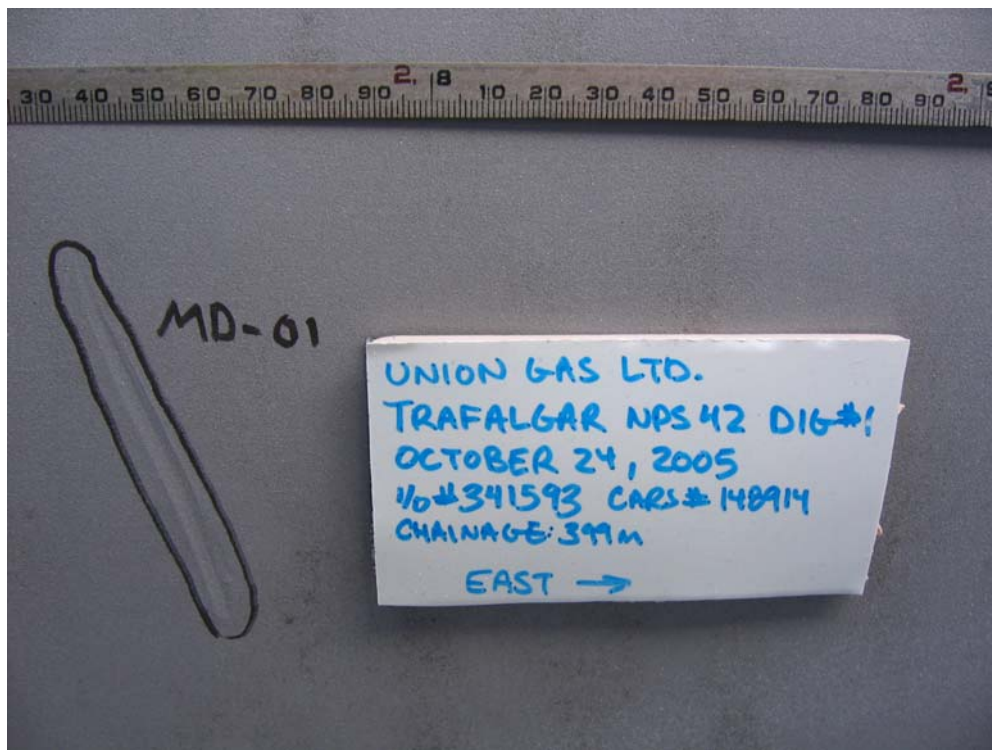 30 40 50 60 70 80 90 2.8 10 20 30 40 50 60 70 80 90 2.9
MD-01
UNION GAS LTD.
TRAFALGAR NPS 42 DIG#1
OCTOBER 24, 2005
I/O#341593 CARS#148914
CHAINAGE: 399m
EAST →